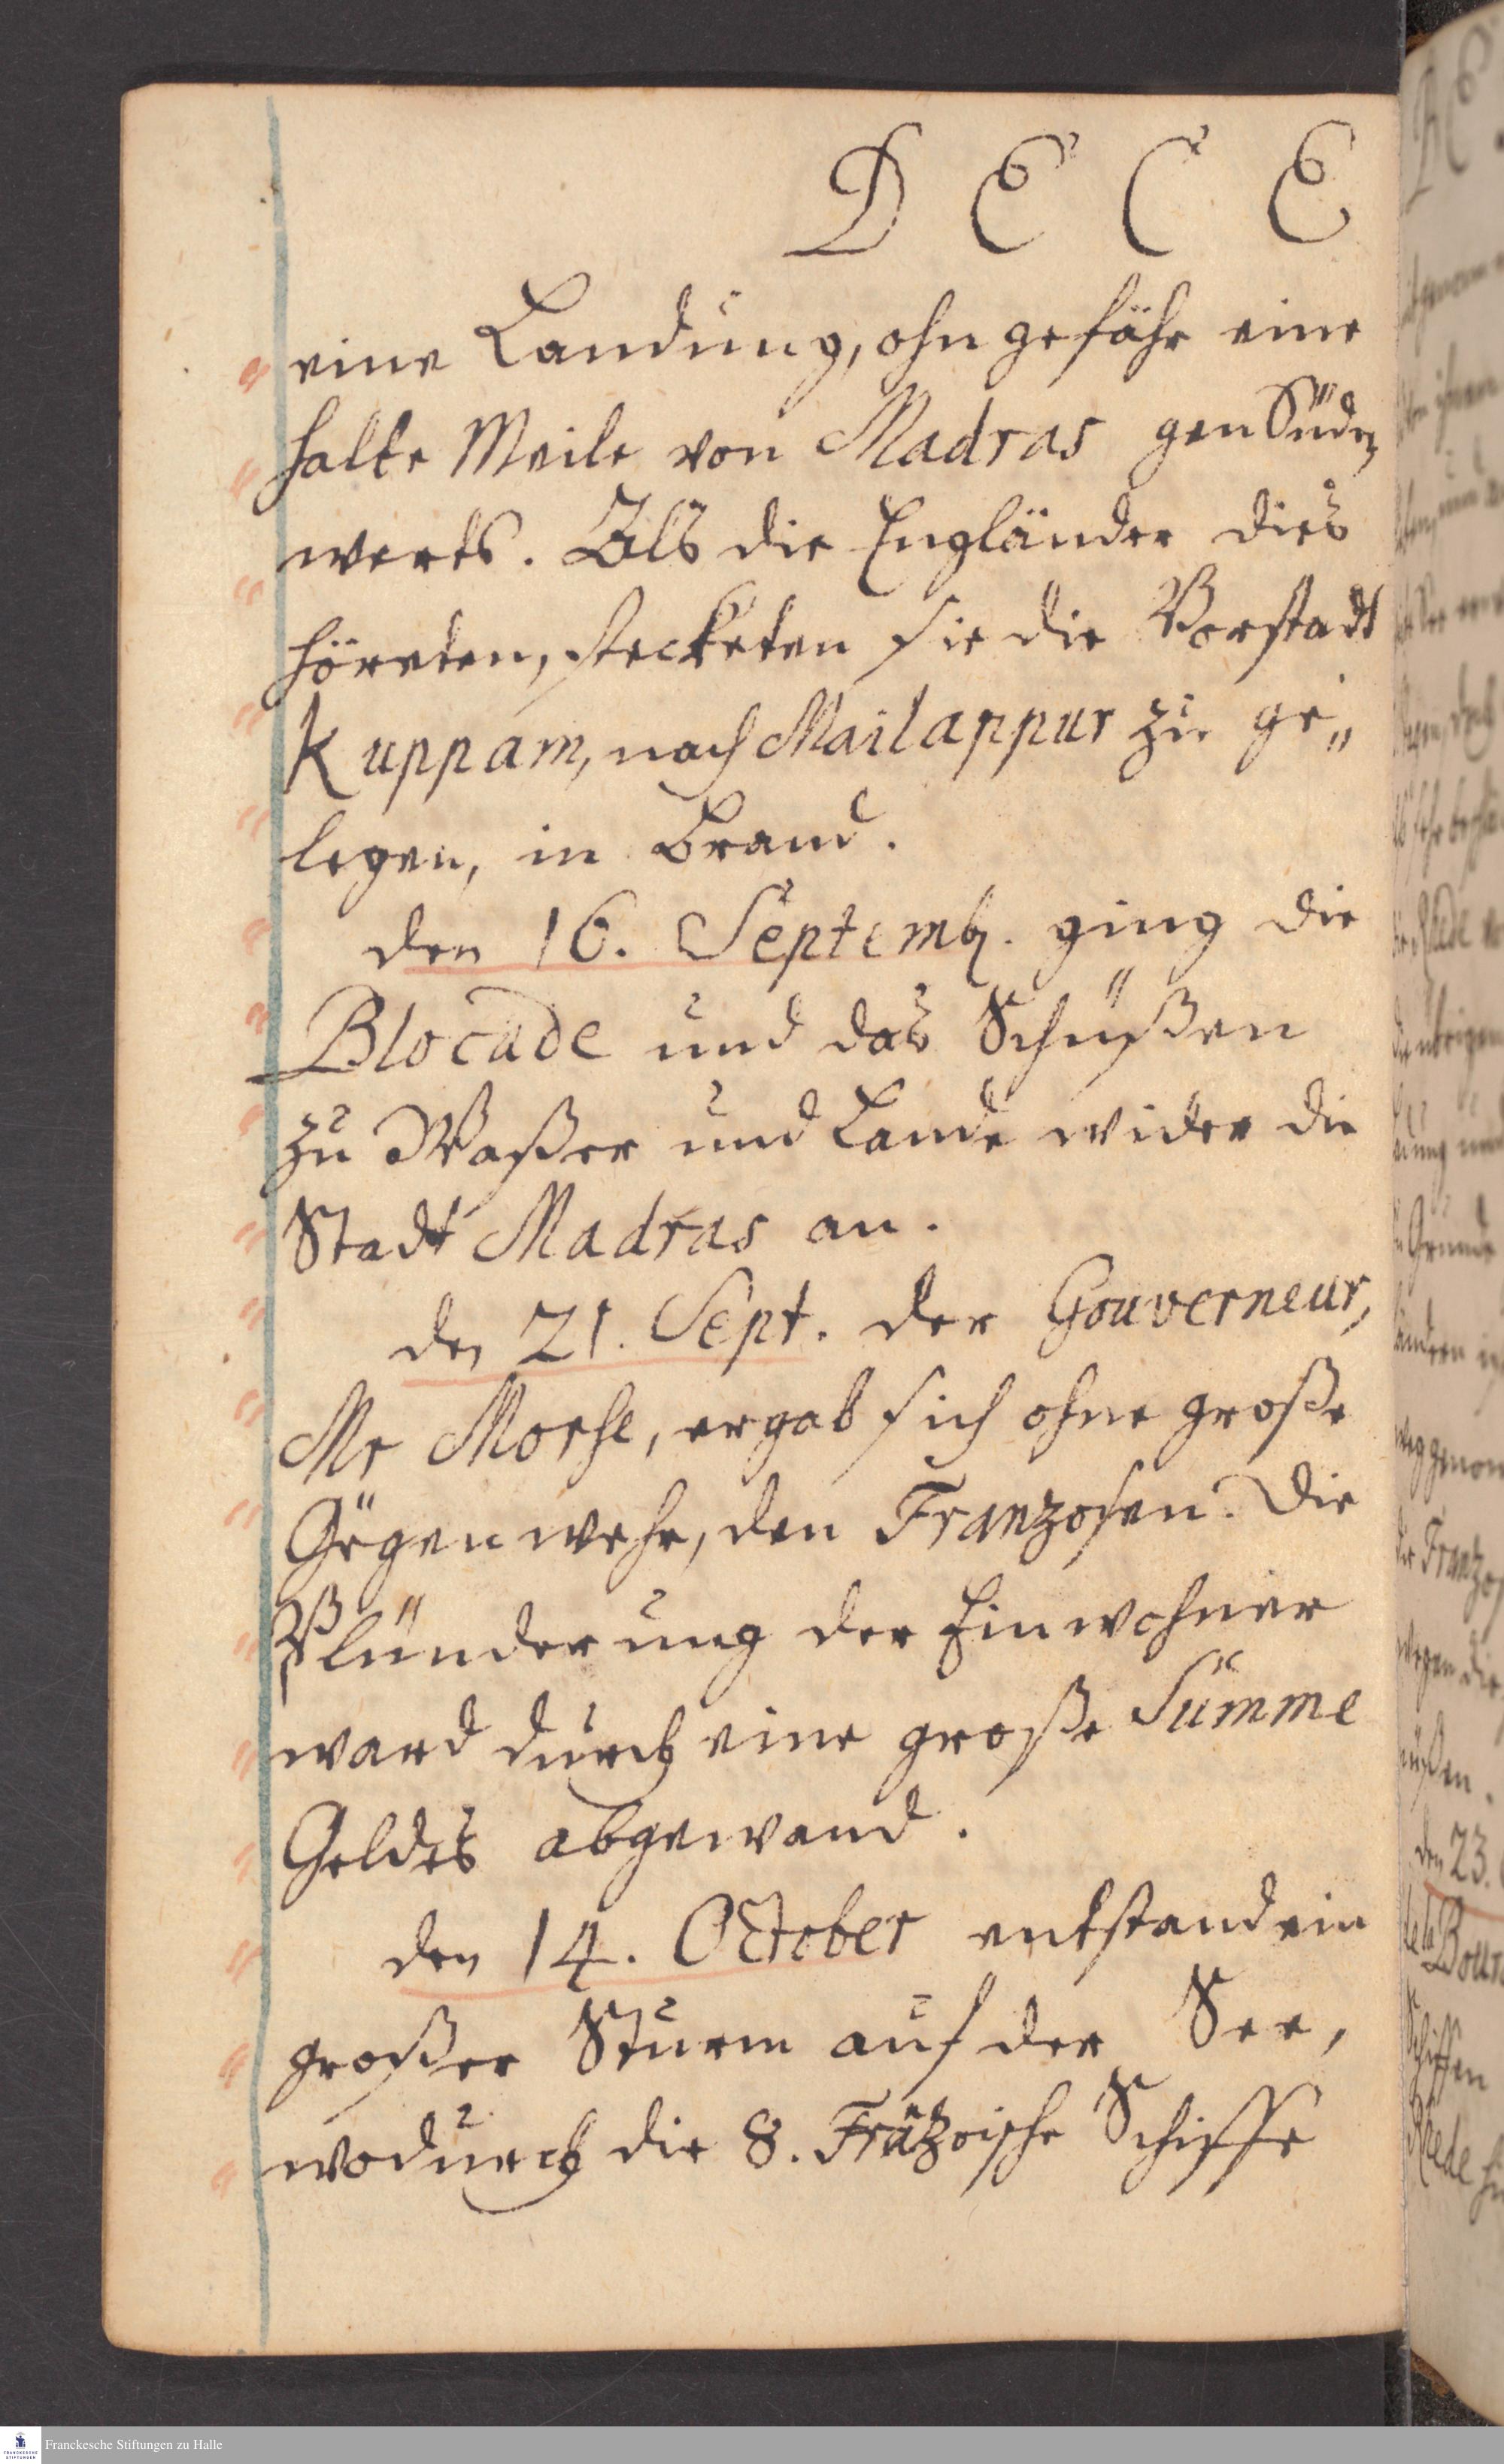 D E C E
eine Landung, ohngefähr eine
halbe Meile von Madras gen Süden
werts. Als die Engländer dies
höreten, stecketen sie die Vorstadt
Kuppam, nach Mailappur zu ge„
legen, in Brand.
den 16. Septemb. ging die
Blocade und das Schüßen
zu Waßer und Lande wider die
Stadt Madras an.
den 21. Sept. der Gouverneur,
Mr Morse, ergab sich ohne große
Gegenwehr, den Franzosen. Die
Plünderung der Einwohner
ward durch eine große Summe
Geldes abgewand.
den 14. October entstand ein
großer Sturm auf der See,
wodurch die 8. Frantzoische Schiffe
den 23.
Franckesche Stiftungen zu Halle